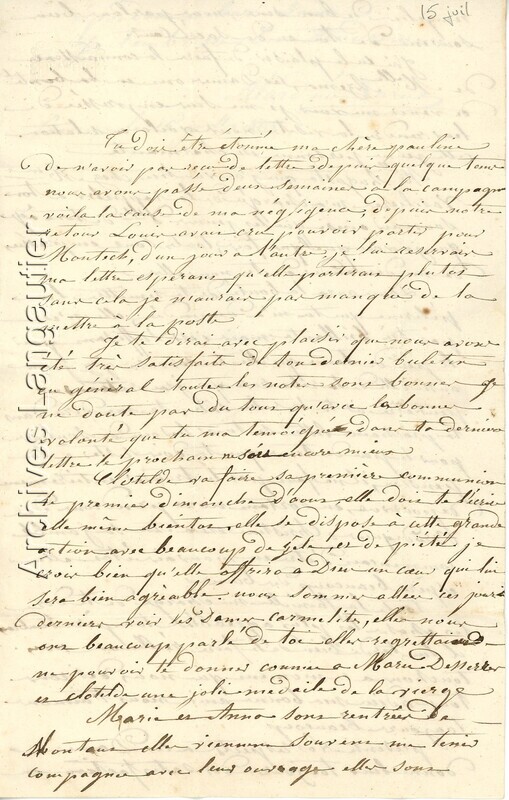 15 juil
Tu dois être étonnée ma chère pauline
de n'avoir pas reçu de lettre depuis quelque tems
nous avons passé deux semaines à la campagne
voila la cause de ma négligence, depuis notre
retour Louis avait cru pouvoir partir pour
Montech, d'un jour à l'autre je lui reservais
ma lettre esperant qu'elle partirais plutot
sans cela je n'aurais pas manqué de la
mettre à la poste
Je te dirai avec plaisir que nous avons
été très satisfaits de ton dernier buletin
en général toutes les notes sont bonnes je
ne doute pas du tout qu'avec la bonne
volonté que tu ma temoigné, dans ta derniere
lettre le prochain ne soit encore mieux
Clotilde va faire sa première communion
le premier dimanche D'aout, elle doit t'ecrire
elle même bientot, elle se dispose à cette grande
action avec beaucoup de zele, et de piété, je
crois bien qu'elle offrira à Dieu un cœur qui lui
sera bien agreable. nous sommes allées ces jours
derniers voir les Dames carmelites, elles nous
ont beaucoup parlé de toi elles regrettaient
ne pouvoir te donner comme a Marie Desserres
et clotilde une jolie medaile de la vierge
Marie et Anna sont rentrées de
Montaut elles viennent souvent me tenir
compagnie avec leur ouvrage elles sont
Archives Langautier